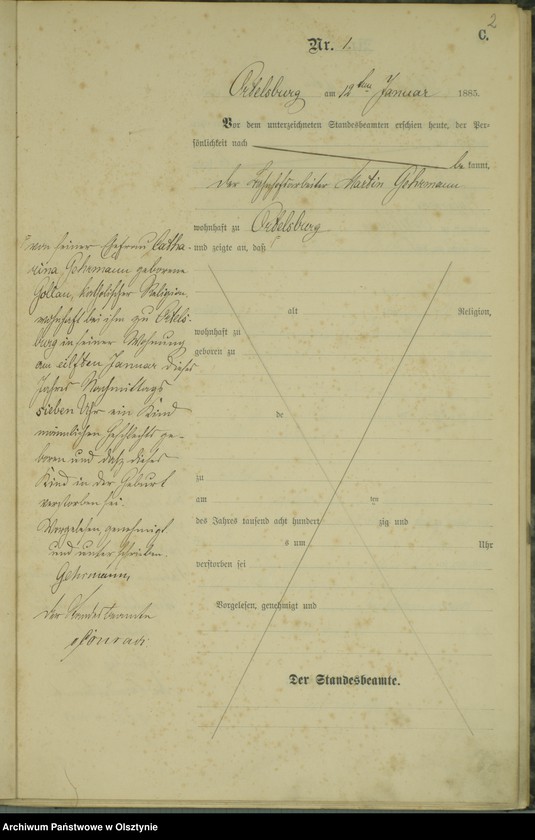 2
C.
Nr. 1.
Ortelsburg am 12ten Januar 1885.
Vor dem unterzeichneten Standesbeamten erschien heute, der Per-
sönlichkeit nach
be kannt,
der Bahnhofsarbeiter Martin Gehrmann
wohnhaft zu Ortelsburg
und zeigte an, daß
von seiner Ehefrau Catha-
rina Gehrmann geborene
Gollan, katholischer Religion,
wohnhaft bei ihm zu Ortels-
burg in seiner Wohnung
am eilften Januar dieses
Jahres Nachmittags
sieben Uhr ein Kind
männlichen Geschlechts ge-
boren und daß dieses
Kind in der Geburt
verstorben sei.
Vorgelesen, genehmigt
und unterschrieben.
Gehrmann
Der Standesbeamte
Conrad.
alt Religion,
wohnhaft zu
geboren zu
de
zu
am ten
des Jahres tausend acht hundert zig und
s um Uhr
verstorben sei
Vorgelesen, genehmigt und
Der Standesbeamte.
Archiwum Państwowe w Olsztynie